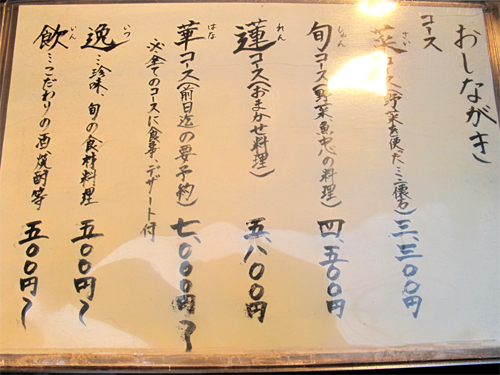 おしながき
コース
菜さいコース(野菜を使ったミニ懐石) 三、三〇〇円
旬しゅんコース(野菜魚中心の料理) 四、五〇〇円
蓮れんコース(おまかせ料理) 五、八〇〇円
華はなコース(前日迄の要予約) 七、〇〇〇円〜
※全てのコースに食事、デザート付
逸いつ…珍味、旬の食材料理 五〇〇円〜
飲いん…こだわりの酒焼酎等 五〇〇円〜